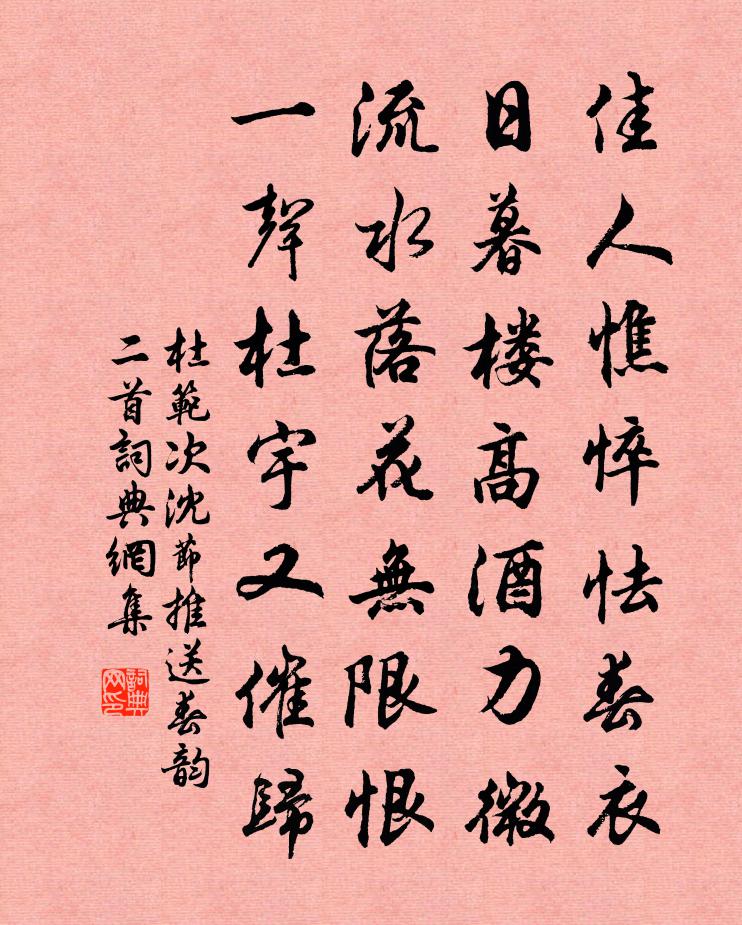 佳人憔悴怯春衣
日暮楼高酒力微
流水落花無限恨
一聲杜宇又催歸
杜範次沈節推送春韵
二首詞典網集
詞典網印